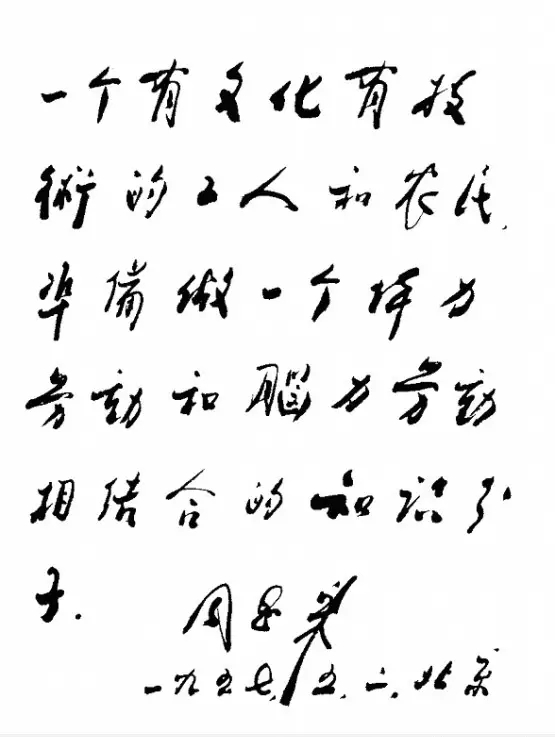 一个有文化有技
術的工人和农民,
準備做一个体力
劳动和腦力劳动
相结合的知识分
子.
周恩来
一九五七,五,二,北京